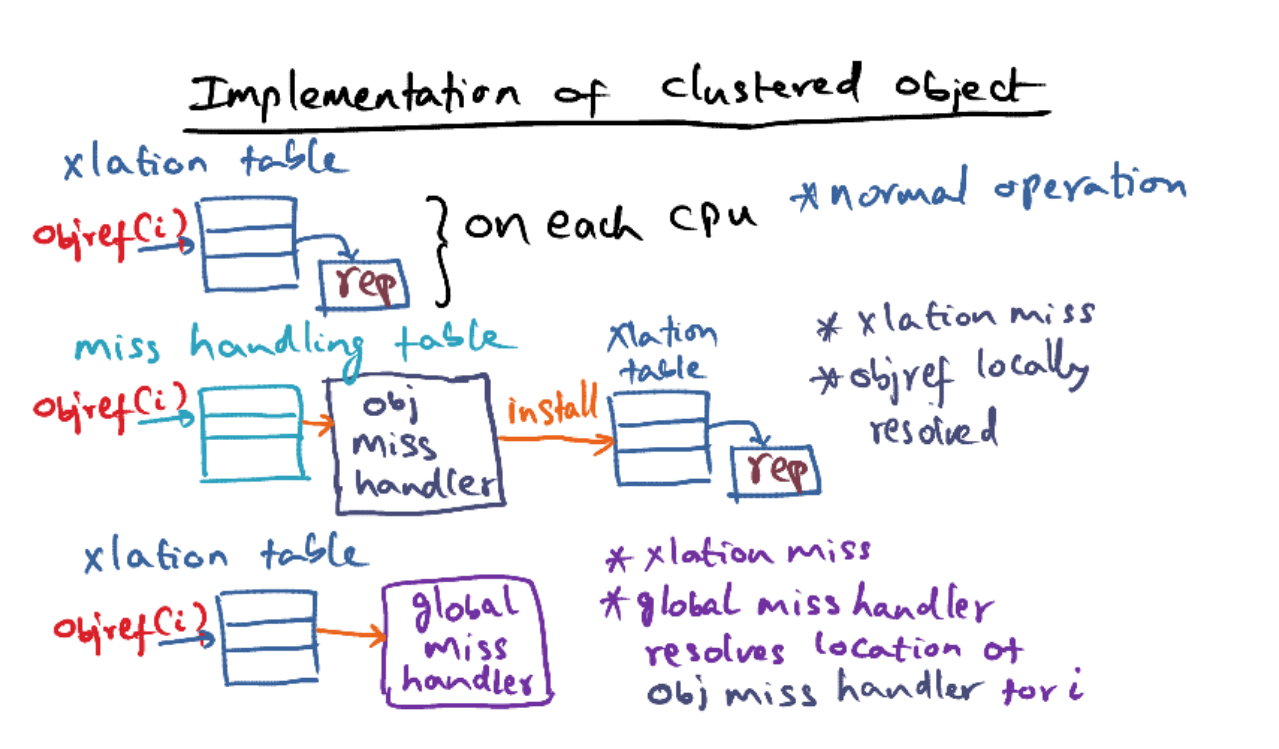 Implementation of clustered object
xlation table
objref(i)
rep
} on each cpu
* normal operation
miss handling table
objref(i)
obj
miss
handler
install
xlation
table
rep
* xlation miss
* objref locally
resolved
xlation table
objref(i)
global
miss
handler
* xlation miss
* global miss handler
resolves location of
obj miss handler for i